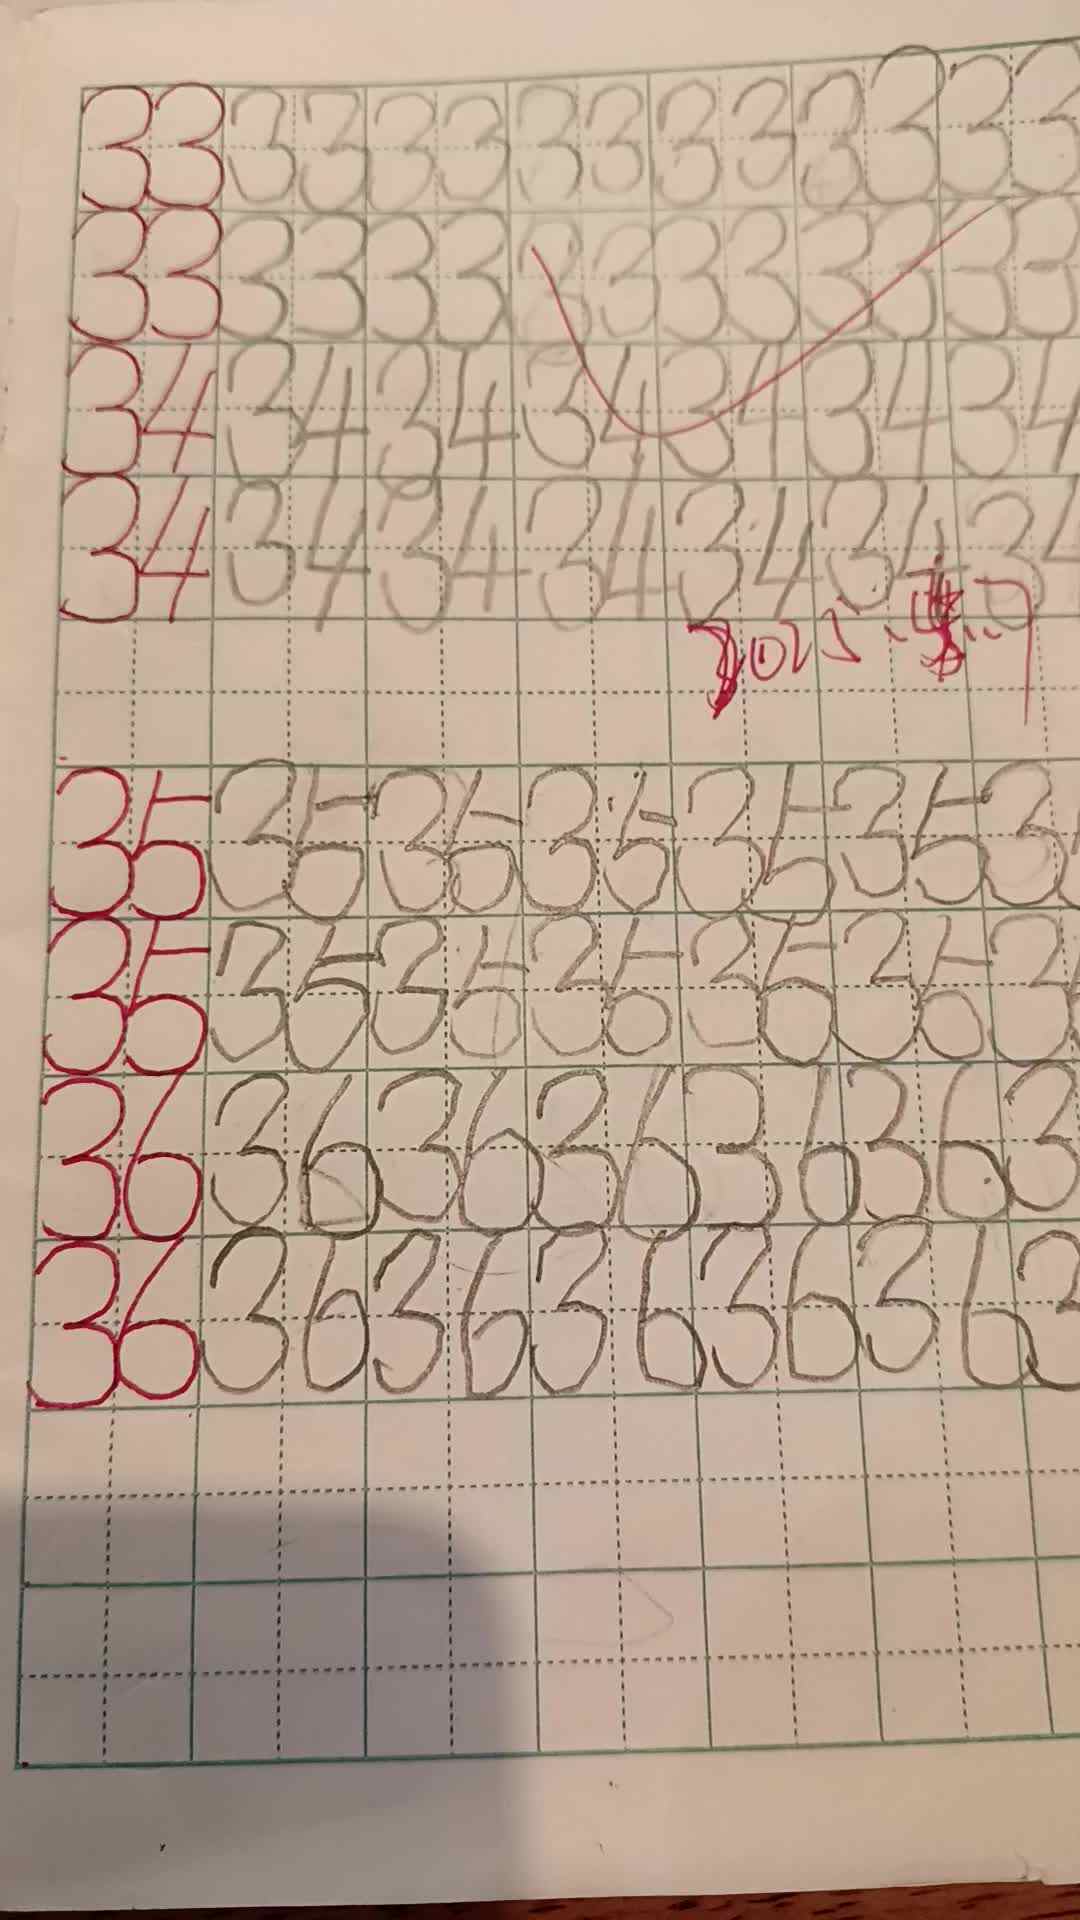 33 33 33 33 33 33 33
33 33 33 33 33 33 33
34 34 34 34 34 34 34
34 34 34 34 34 34 34
35 35 35 35 35 35 3
35 35 35 35 35 35 3
36 36 36 36 36 36 3
36 36 36 36 36 36 3